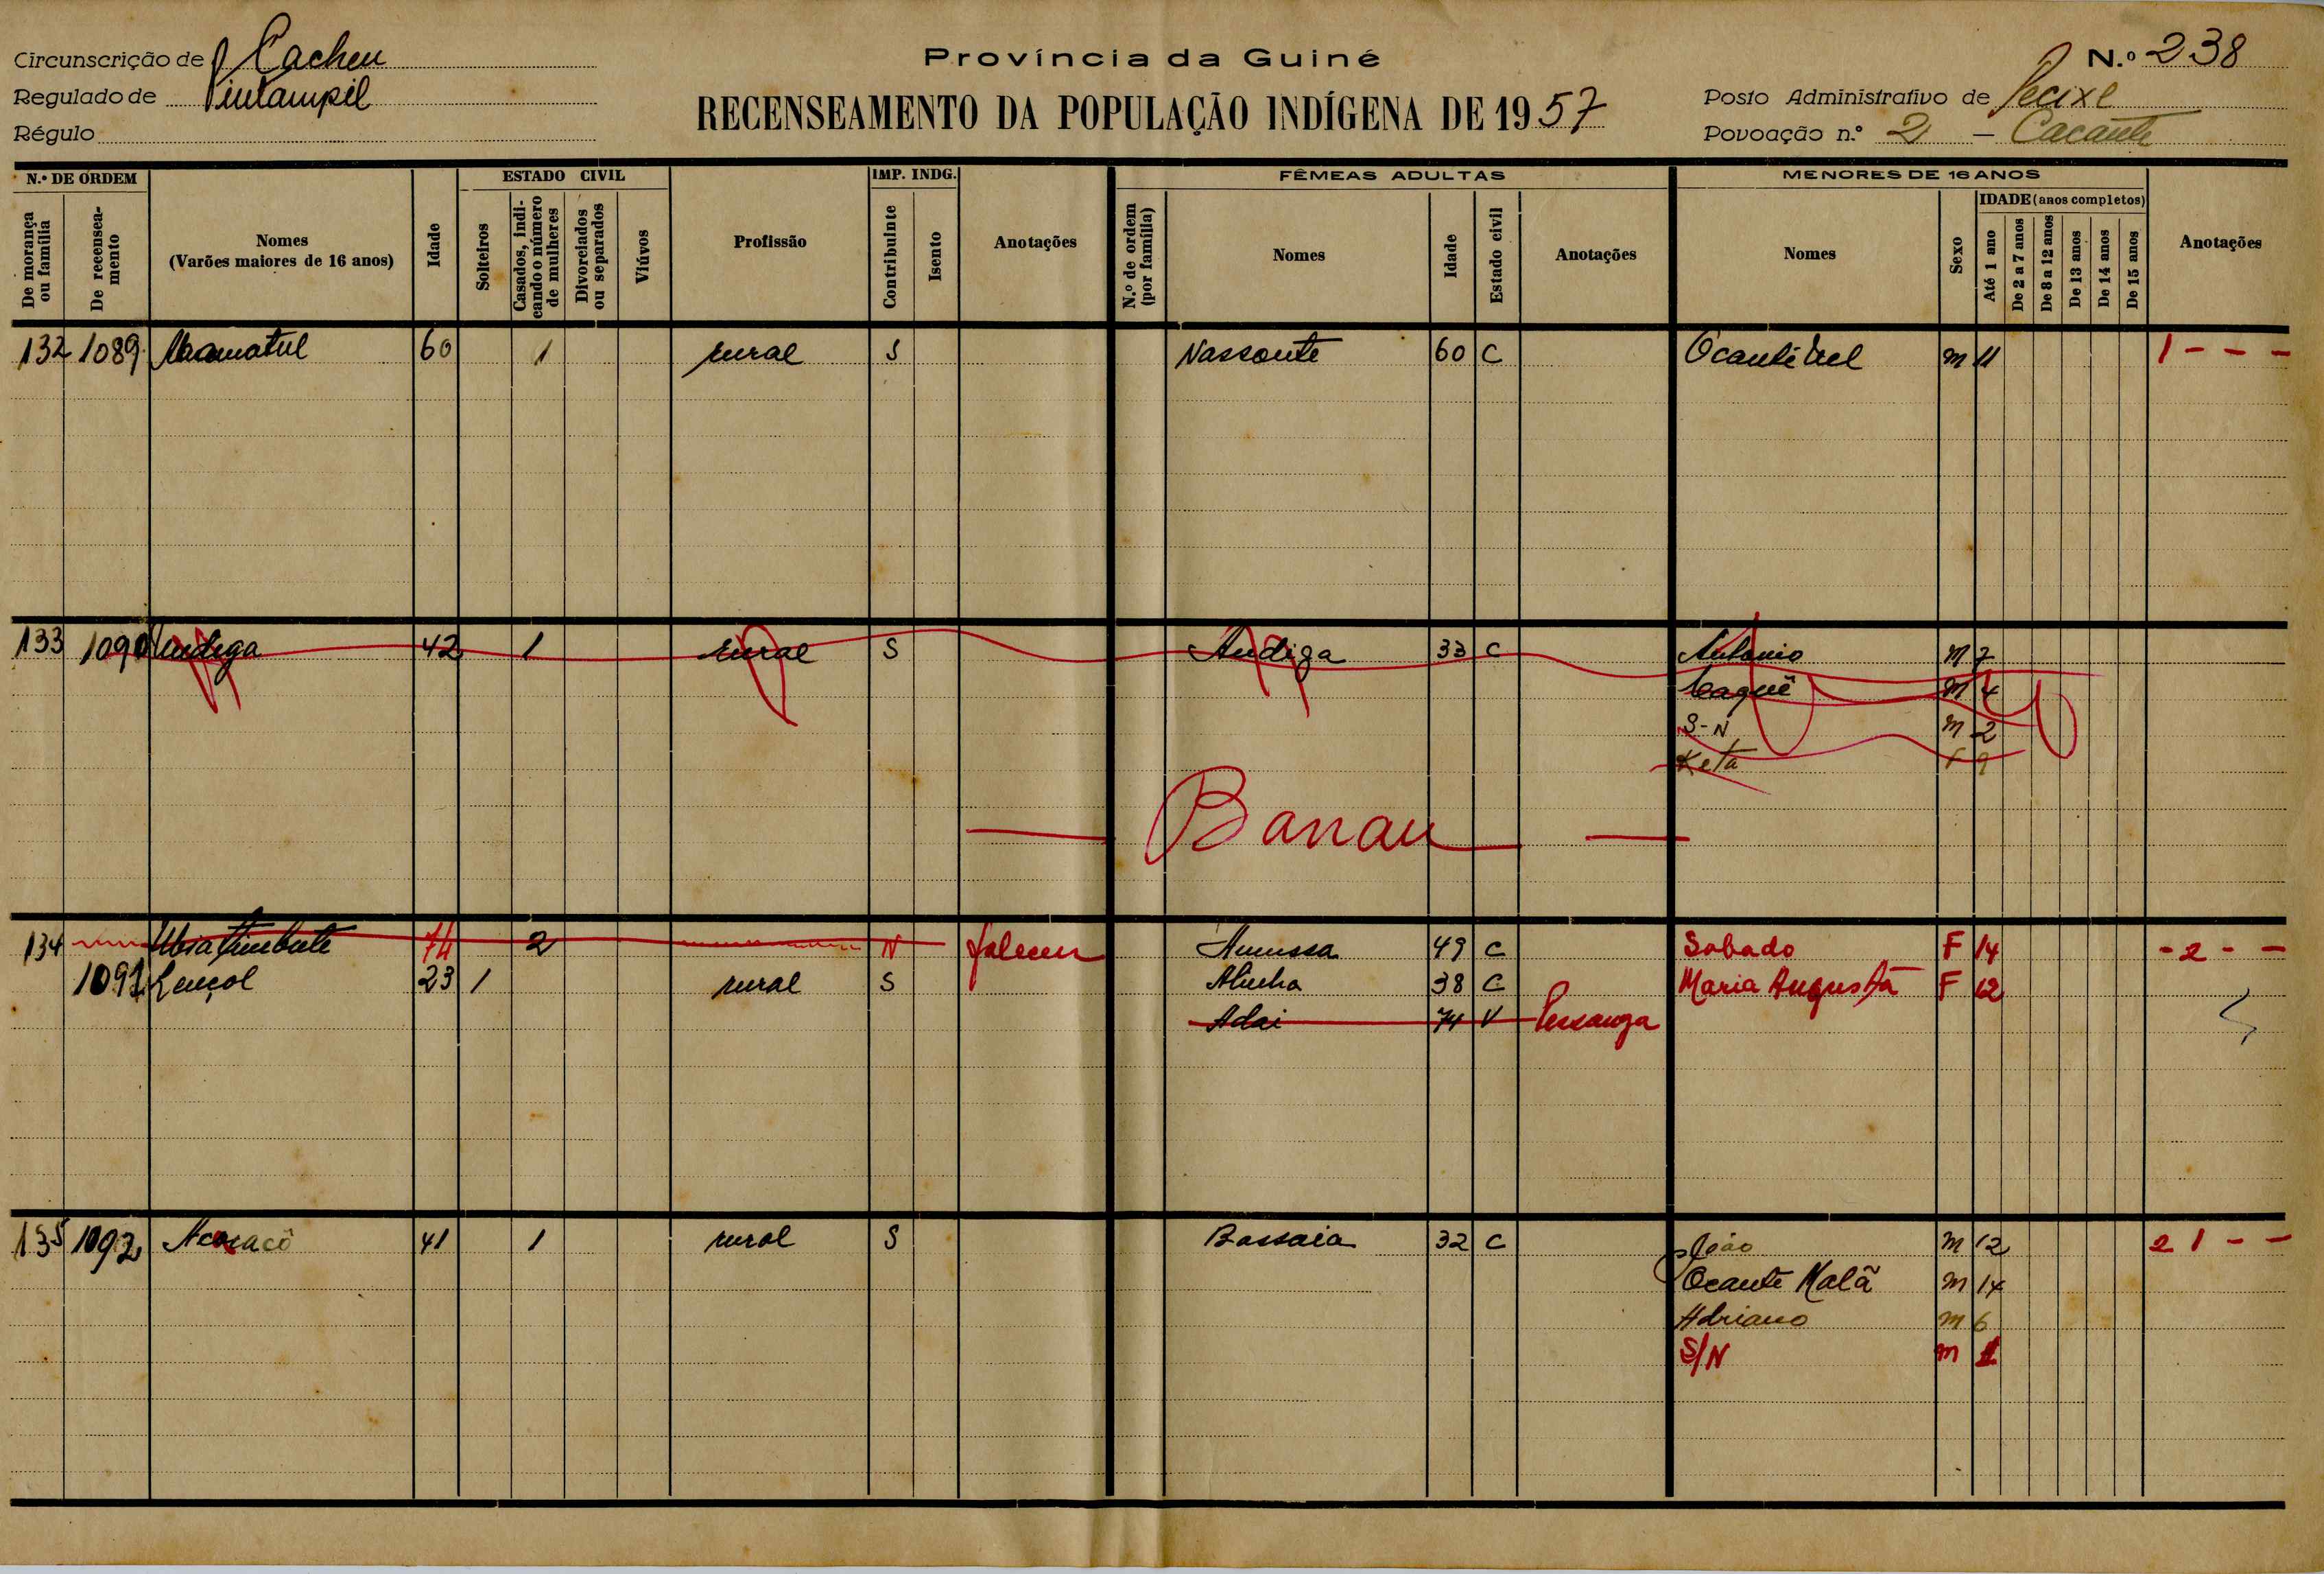 Circunscrição de Cacheu
Regulado de
Régulo
Província da Guiné
RECENSEAMENTO DA POPULAÇÃO INDÍGENA DE 1957
N.º 238
Posto Administrativo de Pecixe
Povoação n.º 2 - Cacante
N.º DE ORDEM
De morança ou família
De recenseamento
Nomes
(Varões maiores de 16 anos)
Idade
ESTADO CIVIL
Solteiros
Casados, indicando o número de mulheres
Divorciados ou separados
Viúvos
Profissão
IMP. INDG.
Contribuinte
Isento
Anotações
FÊMEAS ADULTAS
N.º de ordem (por família)
Nomes
Idade
Estado civil
Anotações
MENORES DE 16 ANOS
Nomes
Sexo
IDADE (anos completos)
Até 1 ano
De 2 a 7 anos
De 8 a 12 anos
De 13 anos
De 14 anos
De 15 anos
Anotações
132 1089 60 1 rural S Nassonte 60 C m 11 1 - - -
133 1090 42 1 rural S Andiga 33 C Antonio M 7
Caquê M 4
S-N M 2
Keta F 9
134 74 2 N faleceu 49 C Sabado F 14 - 2 - -
1091 Lençol 23 1 rural S 38 C Maria Augusta F 12
Adai 74 V
135 1092 41 1 rural S Bassaia 32 C João M 12 2 1 - -
Ocante Malã M 14
Adriano M 6
S/N m 1